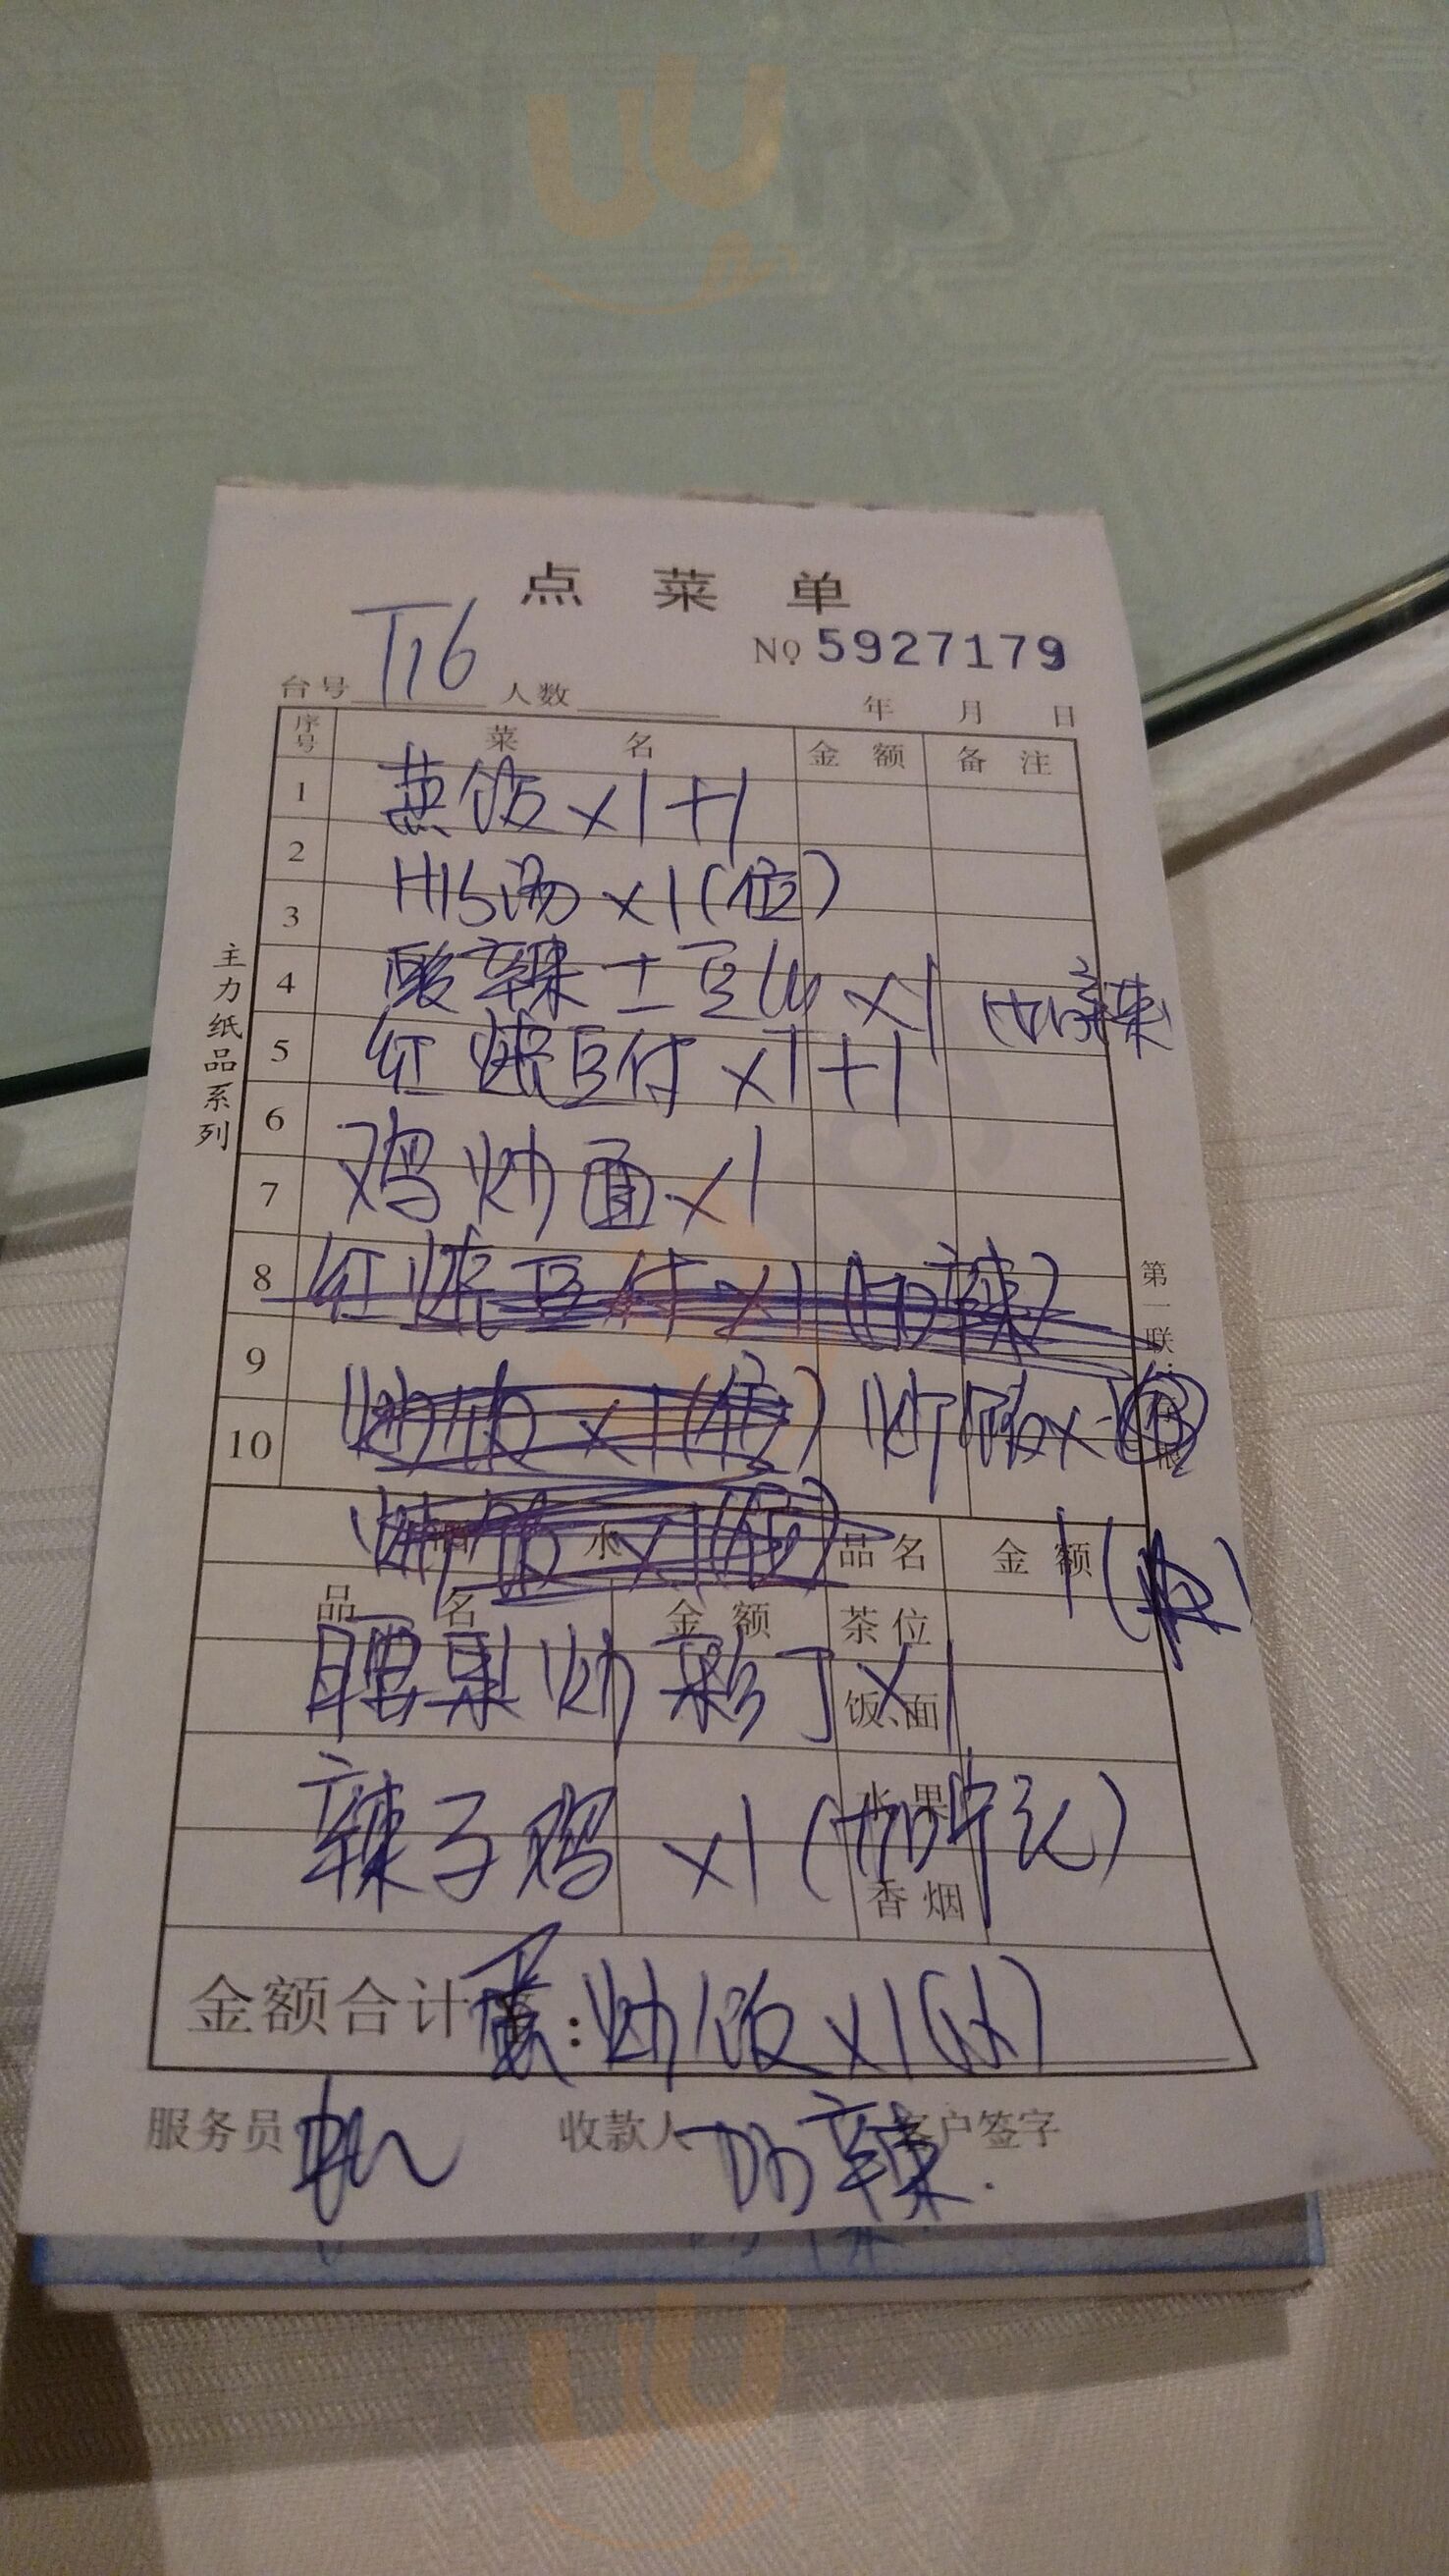 Slurpy
点菜单
T16
NO 5927179
台号 人数 年 月 日
序号 菜名 金额 备注
1 蒸饭 x1+1
2
H1S汤 x1(位)
3
4 酸辣土豆丝 x1 (加辣
5 红烧豆付 x1+1
6
7 鸡炒面 x1
8 红烧豆付 x1 (加辣)
9
10 炒饭 x1(位) 炒饭x
主力纸品系列
第一联:
炒饭 x1(位)
水 品名 金额
1(
品名 金额 茶位
腰果炒彩丁 x1
饭、面
水果
辣子鸡 x1 (加
香烟
金额合计
蛋:炒饭 x1(
服务员 收款人 客户签字
加辣.